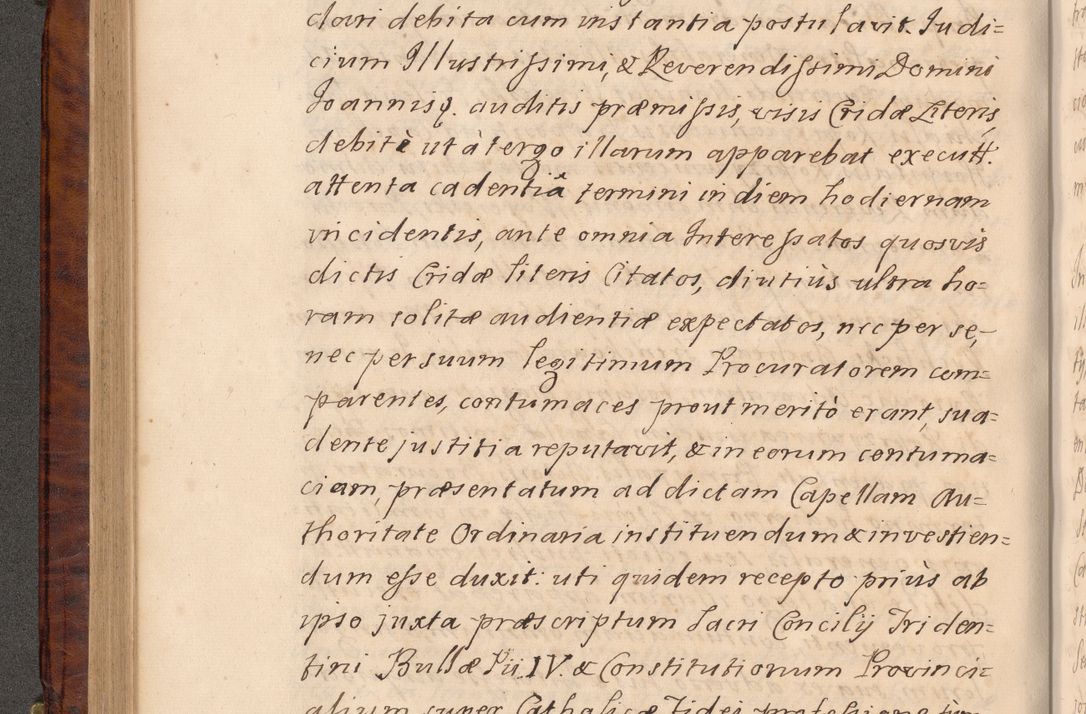 clari debita cum instantia postulavit. Judi=
cium Illustrissimi, & Reverendissimi Domini
Joannisq. auditis præmissis, visis Cridæ Literis
debitè ut à tergo illarum apparebat executt.
attenta cadentiâ termini in diem hodiernam
incidentis, ante omnia Interessatos quosvis
dictis Cridæ literis Citatos, diutiùs ultra ho=
ram solitæ audientiæ expectatos, nec per se,
nec per suum legitimum Procuratorem com=
parentes, contumaces prout meritò erant, sua=
dente justitia reputavit, & in eorum contuma=
ciam, præsentatum ad dictam Capellam Au=
thoritate Ordinaria instituendum & investien=
dum esse duxit: uti quidem recepto priùs ab
ipso juxta præscriptum Sacri Concilij Triden=
tini Bullæ Pii IV. & Constitutionum Provinci=
alium super Catholicæ Fidei professione